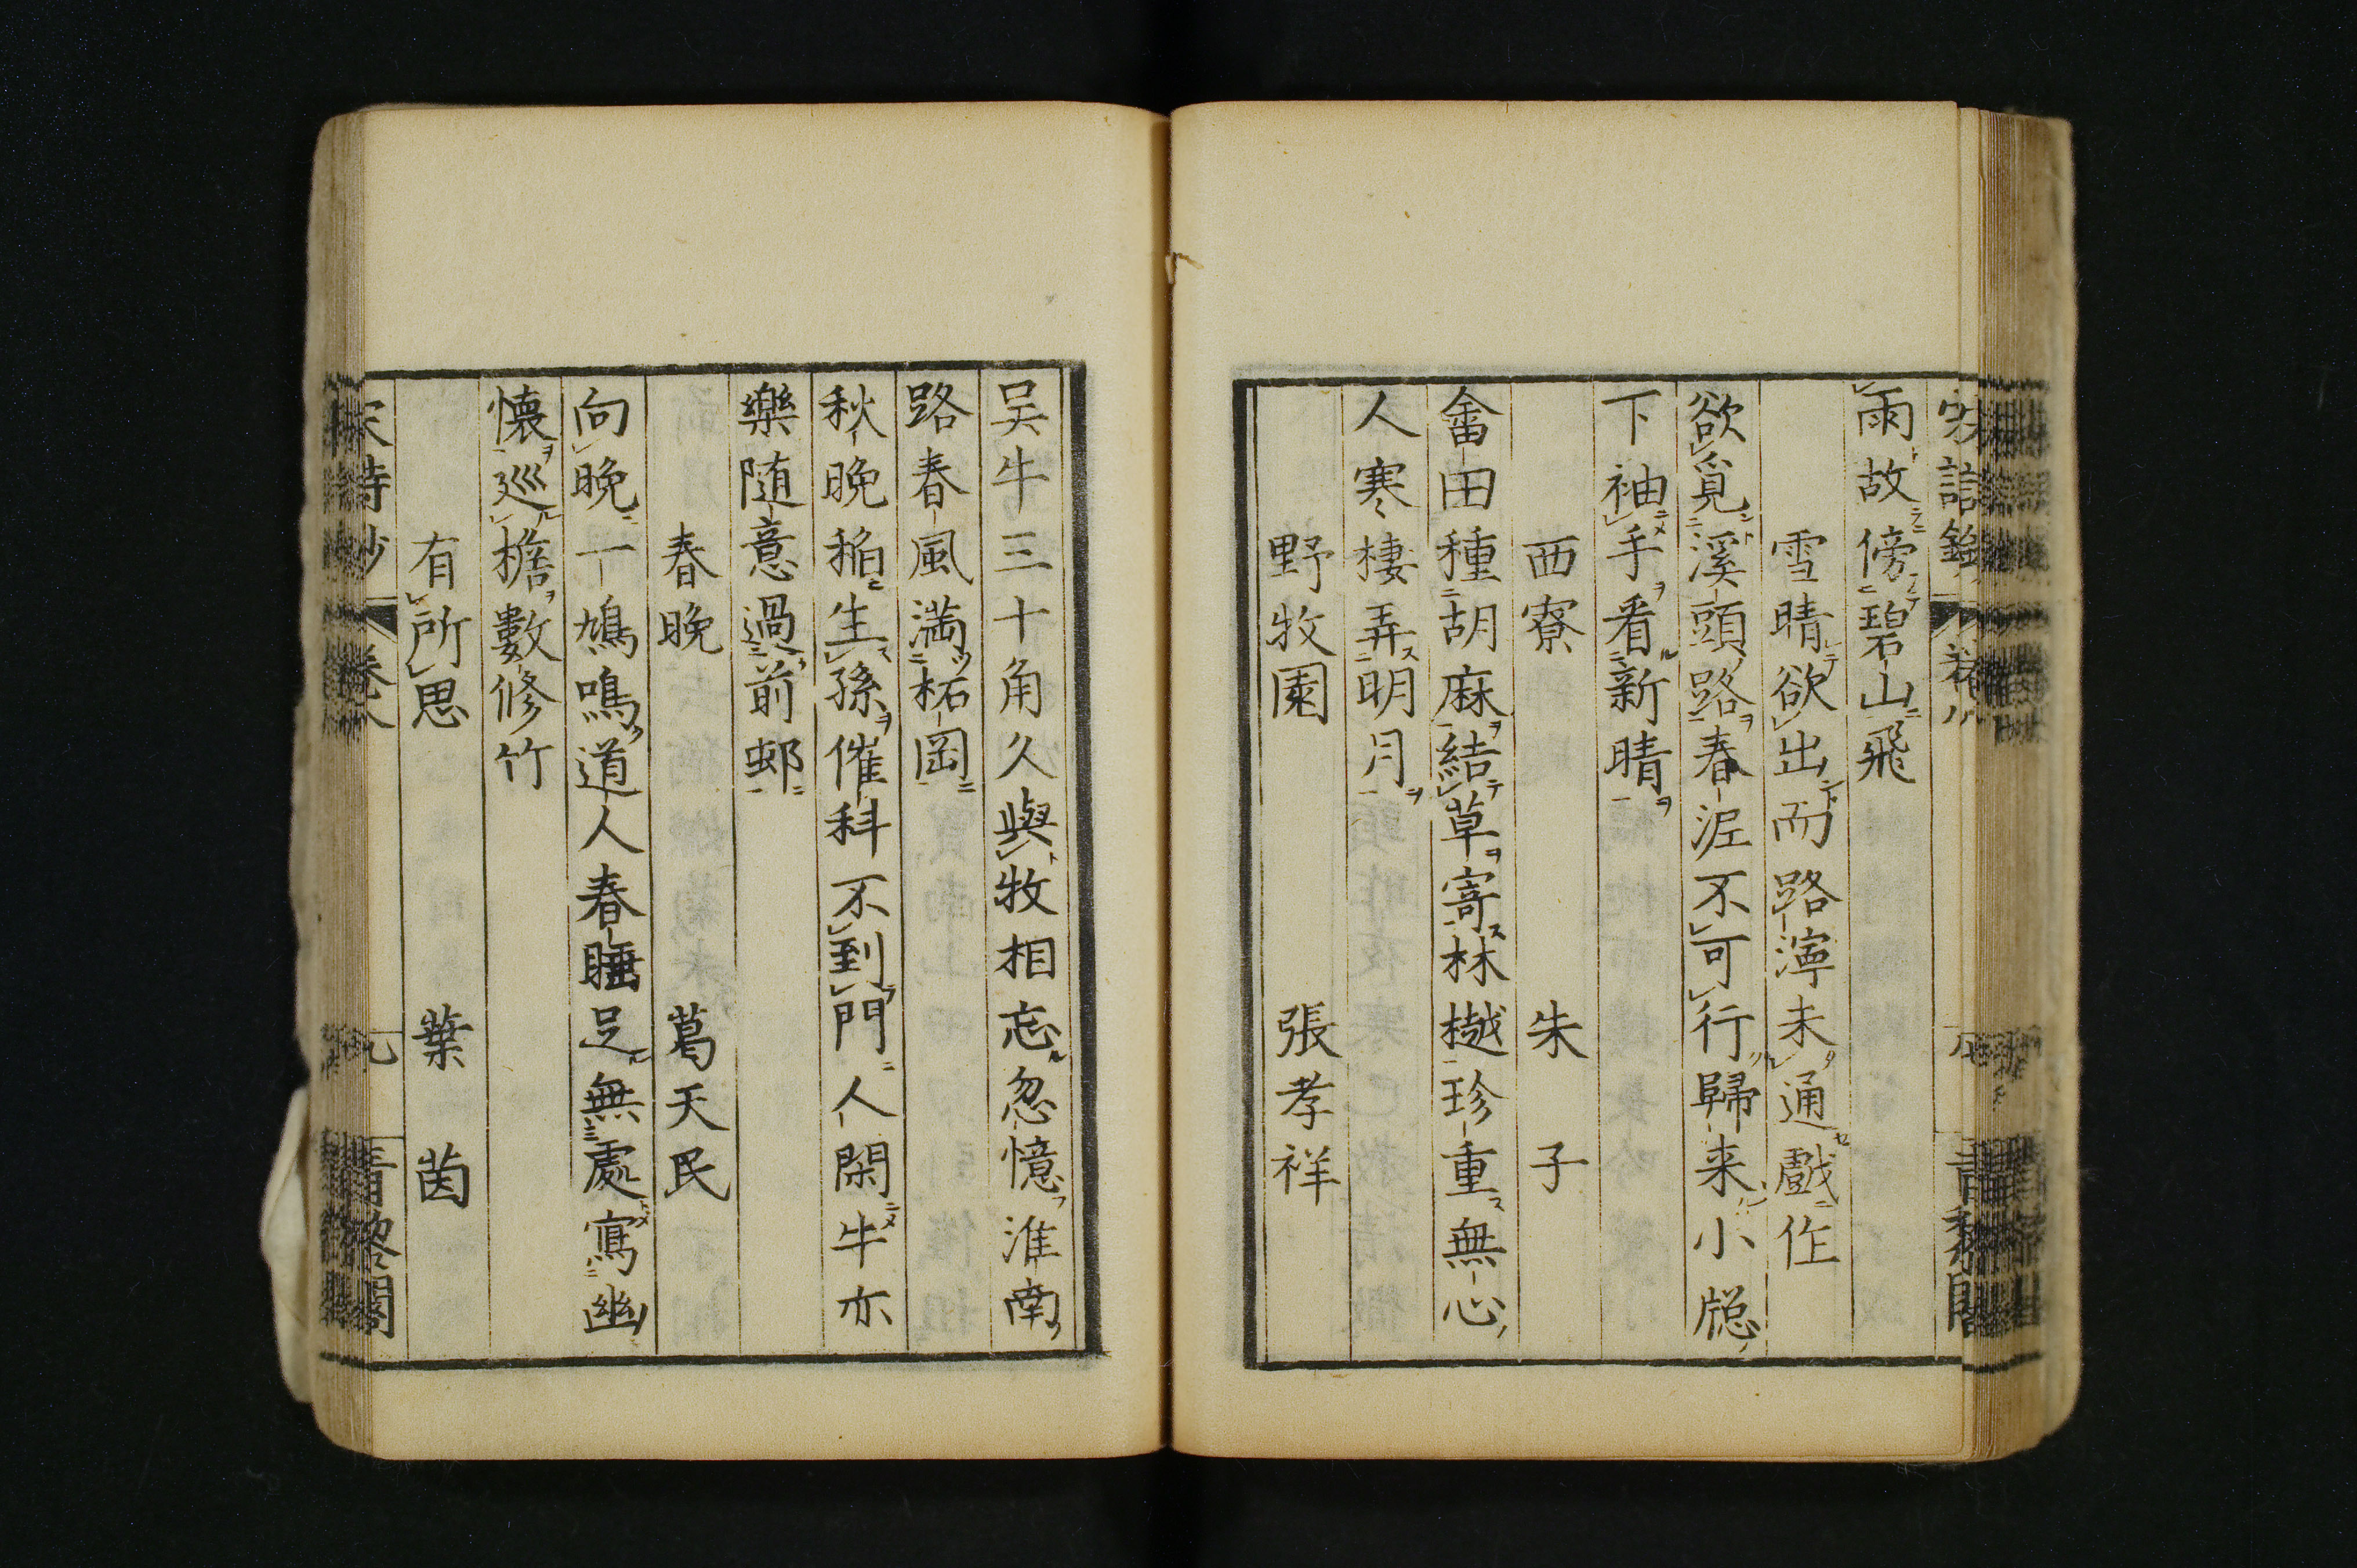 雨故傍碧山飛
雪晴欲出而路濘未通戲作
欲覓溪頭路春泥不可行歸来小牕
下袖手看新晴
西寮 朱子
畬田種胡麻結草寄林樾珍重無心
人寒棲弄明月
野牧園 張孝祥
吴牛三十角久與牧相忘忽憶淮南
路春風満柘岡
秋晩稲生孫催科不到門人閑牛亦
樂随意過前邨
春晩 葛天民
向晩一鳩鳴道人春睡足無處寫幽
懐巡檐數修竹
有所思 葉茵